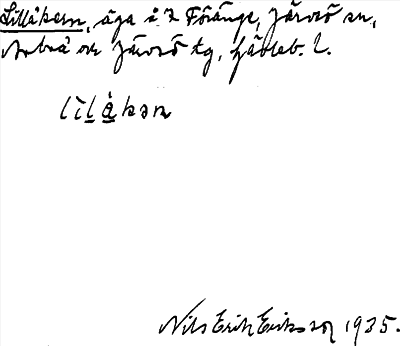 Lillåkern, äga i 7 Föränge, Järvsö sn,
Arbrå o. Järvsö tg, Gävleb. l.
lìlåkən
Nils Erik Eriksson 1935.